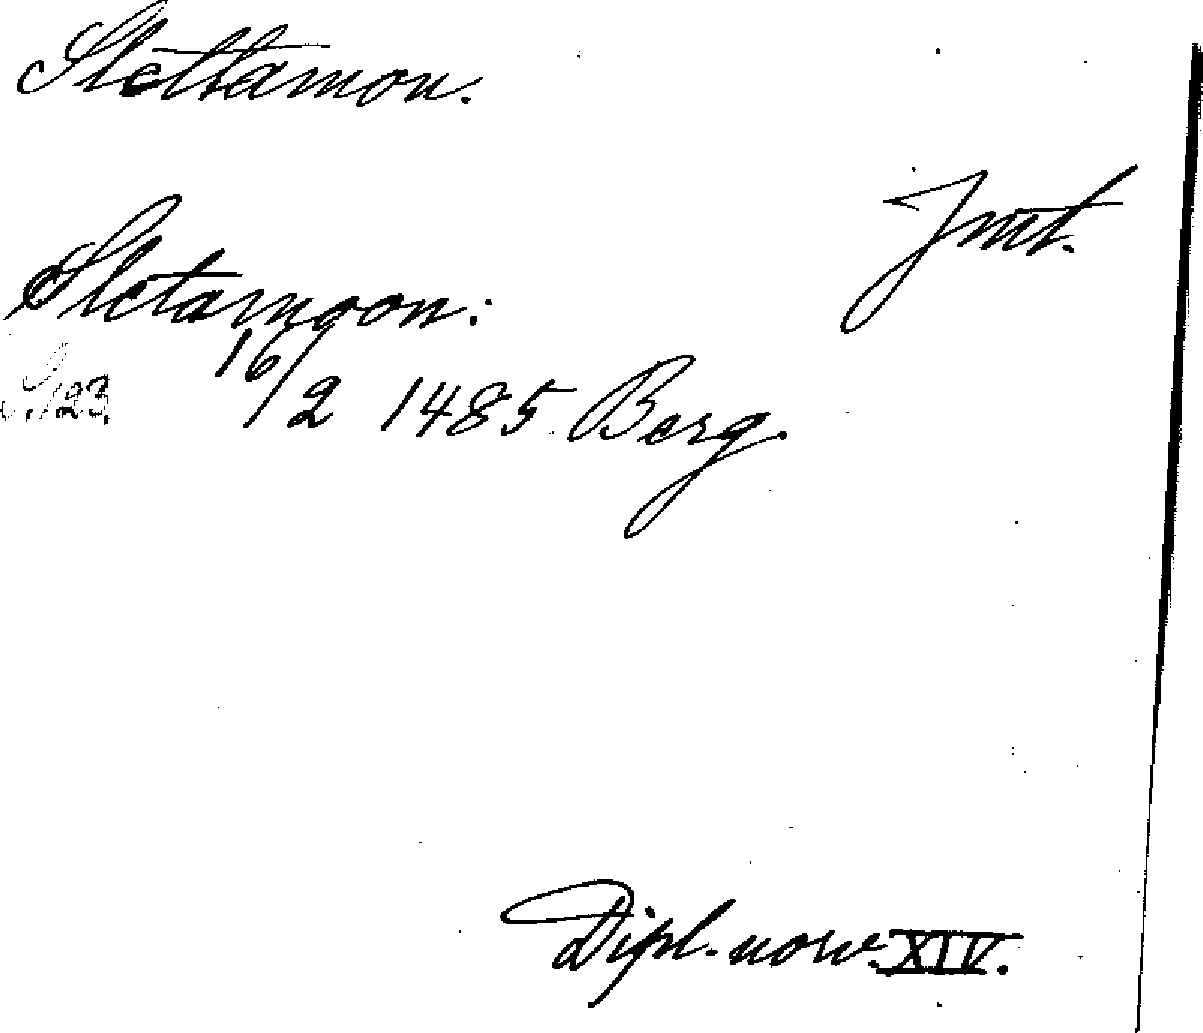 Slettamon.
Jmt.
Sletamoon:
S. 123. 16/2 1485 Berg.
Dipl. norv. XIV.